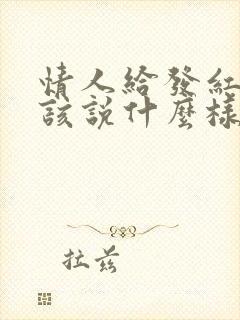 情人給發紅
該說什麼樣
拉茲